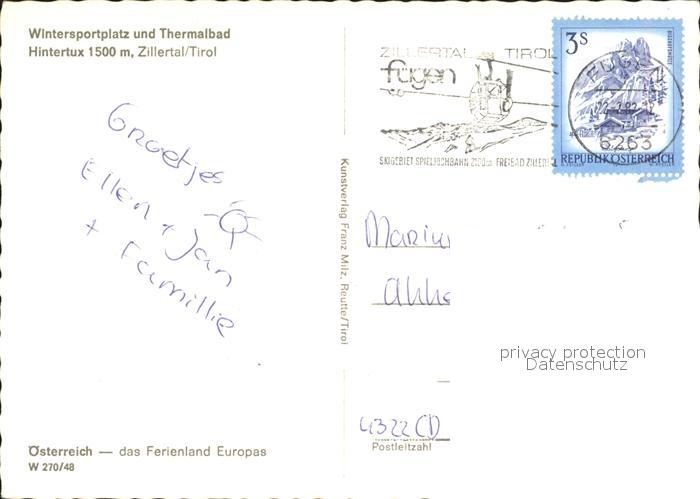 Wintersportplatz und Thermalbad
Hintertux 1500 m, Zillertal/Tirol
Groetjes
Ellen + Jan
+ Famillie
Österreich — das Ferienland Europas
W 270/48
Kunstverlag Franz Milz, Reutte/Tirol
ZILLERTAL TIROL
fügen
SKIGEBIET SPIELJOCHBAHN 2100m FREIBAD
3S
6263
REPUBLIK ÖSTERREICH
Marius
4322 CD
Postleitzahl
privacy protection
Datenschutz